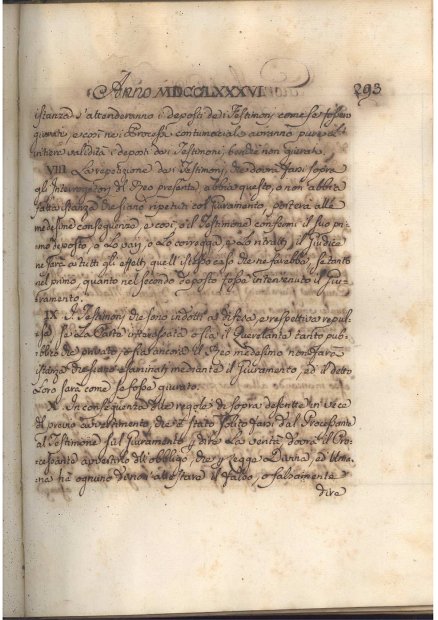 Anno MDCCLXXXVI. 293
istanza s'attenderanno i deposti de i Testimonj come se fossero
giurati, e così nei Processi contumaciali avranno pure d'in
tiera validità i deposti de i Testimonj, benchè non giurati.
VIII La repetizione de i Testimonj, che dovrà farsi sopra
gl'Interrogatorj del Reo presente, abbia questo, o non abbia
fatta istanza che siano ripetuti col giuramento, porterà alle
medesime conseguenze, e così, o il Testimone confermi il suo pri
mo deposto, o Lo varj, o Lo corregga, o Lo ritratti, il Giudice
ne farà a tutti gli effetti quell'istesso caso che ne farebbe, se tanto
nel primo, quanto nel secondo deposto fosse intervenuto il Giu-
ramento.
IX I Testimonj che sono indotti a difesa, e respettiva repul
sa, se La Parte interessata o sia il Querelante tanto pub
blico che privato, o sia ancora il Reo medesimo non farà
istanza che siano esaminati mediante il Giuramento, ed il detto
Loro sarà come se fosse giurato.
X. In conseguenza delle regole di sopra descritte in vece
di previo avvertimento, che è stato solito farsi dal Processante
al Testimone sul Giuramento di dire La verità dovrà il Pro-
cessante avvertirlo dell'obbligo, che p Legge Divina, ed Uma
na ha ognuno di non attestare il falso, o falsamente
dire